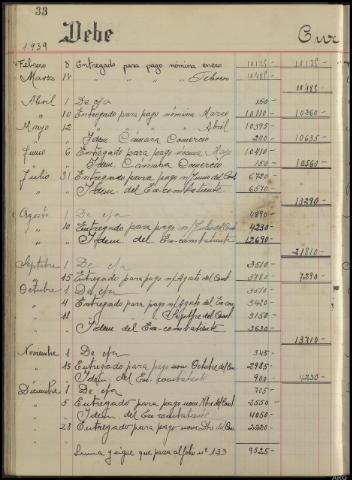 33
1939
Debe
Cur
Febrero 8 Entregado para pago nómina enero 10135- 10135-
Marzo 14 " " " " Febrero 10485-
10485-
Abril 1 De cja 150-
" 10 Entregado para pago nómina Marzo 10110- 10260-
Mayo 12 " " " " Abril 10395-
" " Idem Cámara Comercio 240- 10635-
Junio 6 Entregado para pago nómina Mayo 10410-
" " Idem. Cámara Comercio 150- 10560-
Julio 31 Entregado para pago m/ Junio del Cont 6720-
" " Idem del Excombatiente 6570-
13290-
Agosto 1 De cja 4890-
" 10 Entregado para pago m/ Julio del Cont 4230-
" " Idem del Excombatiente 12690-
21810-
Septbre 1 De cja 3510-
" 15 Entregado para pago m/ Agsto del Cont 3780- 7290-
Octubre 1 De cja 3510-
" 4 Entregado para pago m/ Agsto del Excom 3420-
" 11 " " " Septbre del Cont 3150-
" " Idem del Excombatiente 3630-
13710-
Noviembre 1 De cja 345-
" 15 Entregado para pago nom Octubre del Con 2985-
" " Idem del Excombatiente 900 4230-
Diciembre 1 De cja 705-
" 5 Entregado para pago nom Nbre del Cont 2550-
" " Idem del Excombatiente 4050-
" 23 Entregado para pago nom Dbre del Con 2220-
Suma y sigue que para al folio nº 133 9525-